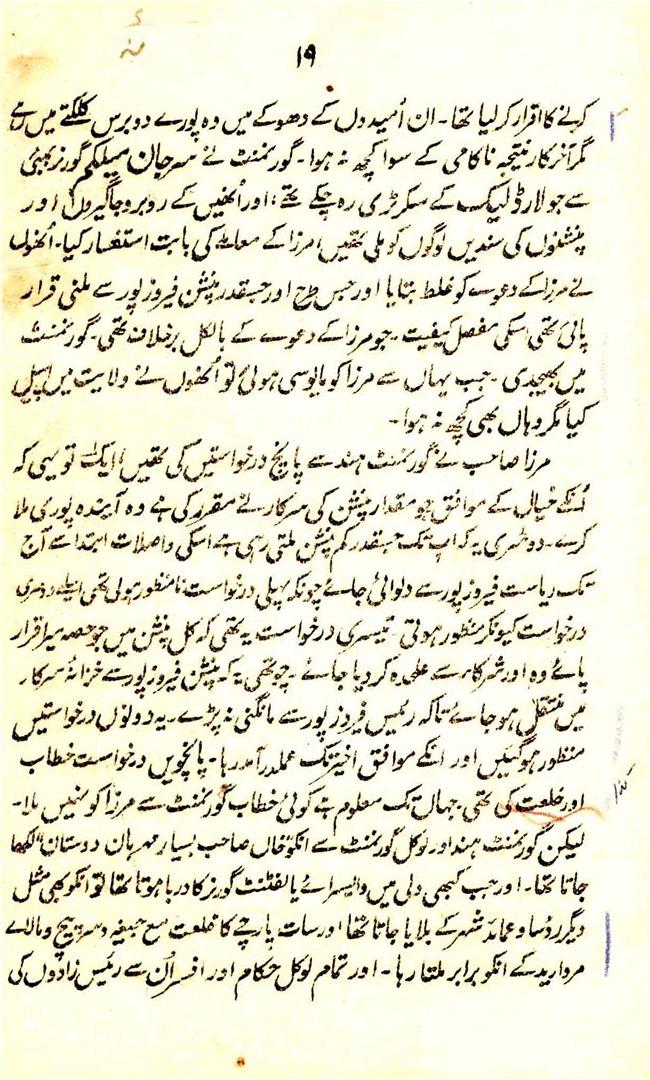 ۱۹
کرنے کا اقرار کر لیا تھا۔ ان اُمیدوں کے دھوکے میں وہ پورے دو برس کلکتے میں رہے
مگر آخر کار نتیجہ ناکامی کے سوا کچھ نہ ہوا۔ گورنمنٹ نے سرجان میلکم گورنر بمبئی
سے جو لارڈ لیک کے سکرٹری رہ چکے تھے، اور اُنھیں کے روبرو جاگیروں اور
پنشنوں کی سندیں لوگوں کو ملی تھیں، مرزا کے معاملے کی بابت استفسار کیا۔ اُنھوں
نے مرزا کے دعوے کو غلط بتایا اور جس طرح اور جسقدر پنشن فیروز پور سے ملنی قرار
پائی تھی اسکی مفصل کیفیت۔ جو مرزا کے دعوے کے بالکل برخلاف تھی۔ گورنمنٹ
میں بھیجدی۔ جب یہاں سے مرزا کو مایوسی ہوئی تو اُنھوں نے ولایت میں اپیل
کیا مگر وہاں بھی کچھ نہ ہوا۔
مرزا صاحب نے گورنمنٹ ہند سے پانچ درخواستیں کی تھیں، ایک تو یہی کہ
اُنکے خیال کے موافق جو مقدار پنشن کی سرکار نے مقرر کی ہے وہ آیندہ پوری ملا
کرے۔ دوسری یہ کہ اب تک جسقدر کم پنشن ملتی رہی ہے اسکی واصلات ابتدا سے آج
تک ریاست فیروز پور سے دلوائی جائے چونکہ پہلی درخواست نامنظور ہوئی تھی اسلیے دوسری
درخواست کیونکر منظور ہوتی۔ تیسری درخواست یہ تھی کہ کل پنشن میں جو حصہ میرا قرار
پائے وہ اور شرکا سے علٰحدہ کر دیا جائے۔ چوتھی یہ کہ پنشن فیروز پور سے خزانۂ سرکار
میں منتقل ہو جائے تاکہ رئیس فیروز پور سے مانگنی نہ پڑے۔ یہ دونوں درخواستیں
منظور ہوگئیں اور انکے موافق اخیر تک عملدرآمد رہا۔ پانچویں درخواست خطاب
اور خلعت کی تھی۔ جہاں تک معلوم ہے کوئی خطاب گورنمنٹ سے مرزا کو نہیں ملا۔
لیکن گورنمنٹ ہند اور لوکل گورنمنٹ سے انکو "خاں صاحب بسیار مہربان دوستان" لکھا
جاتا تھا۔ اور جب کبھی دلی میں وایسرائے یا لفٹنٹ گورنر کا دربار ہوتا تھا تو انکو بھی مثل
دیگر رؤسا و عمائد شہر کے بلایا جاتا تھا اور سات پارچے کا خلعت مع جیغہ و سرپیچ و مالاے
مروارید کے انکو برابر ملتا رہا۔ اور تمام لوکل حکام اور افسر اُن سے رئیس زادوں کی